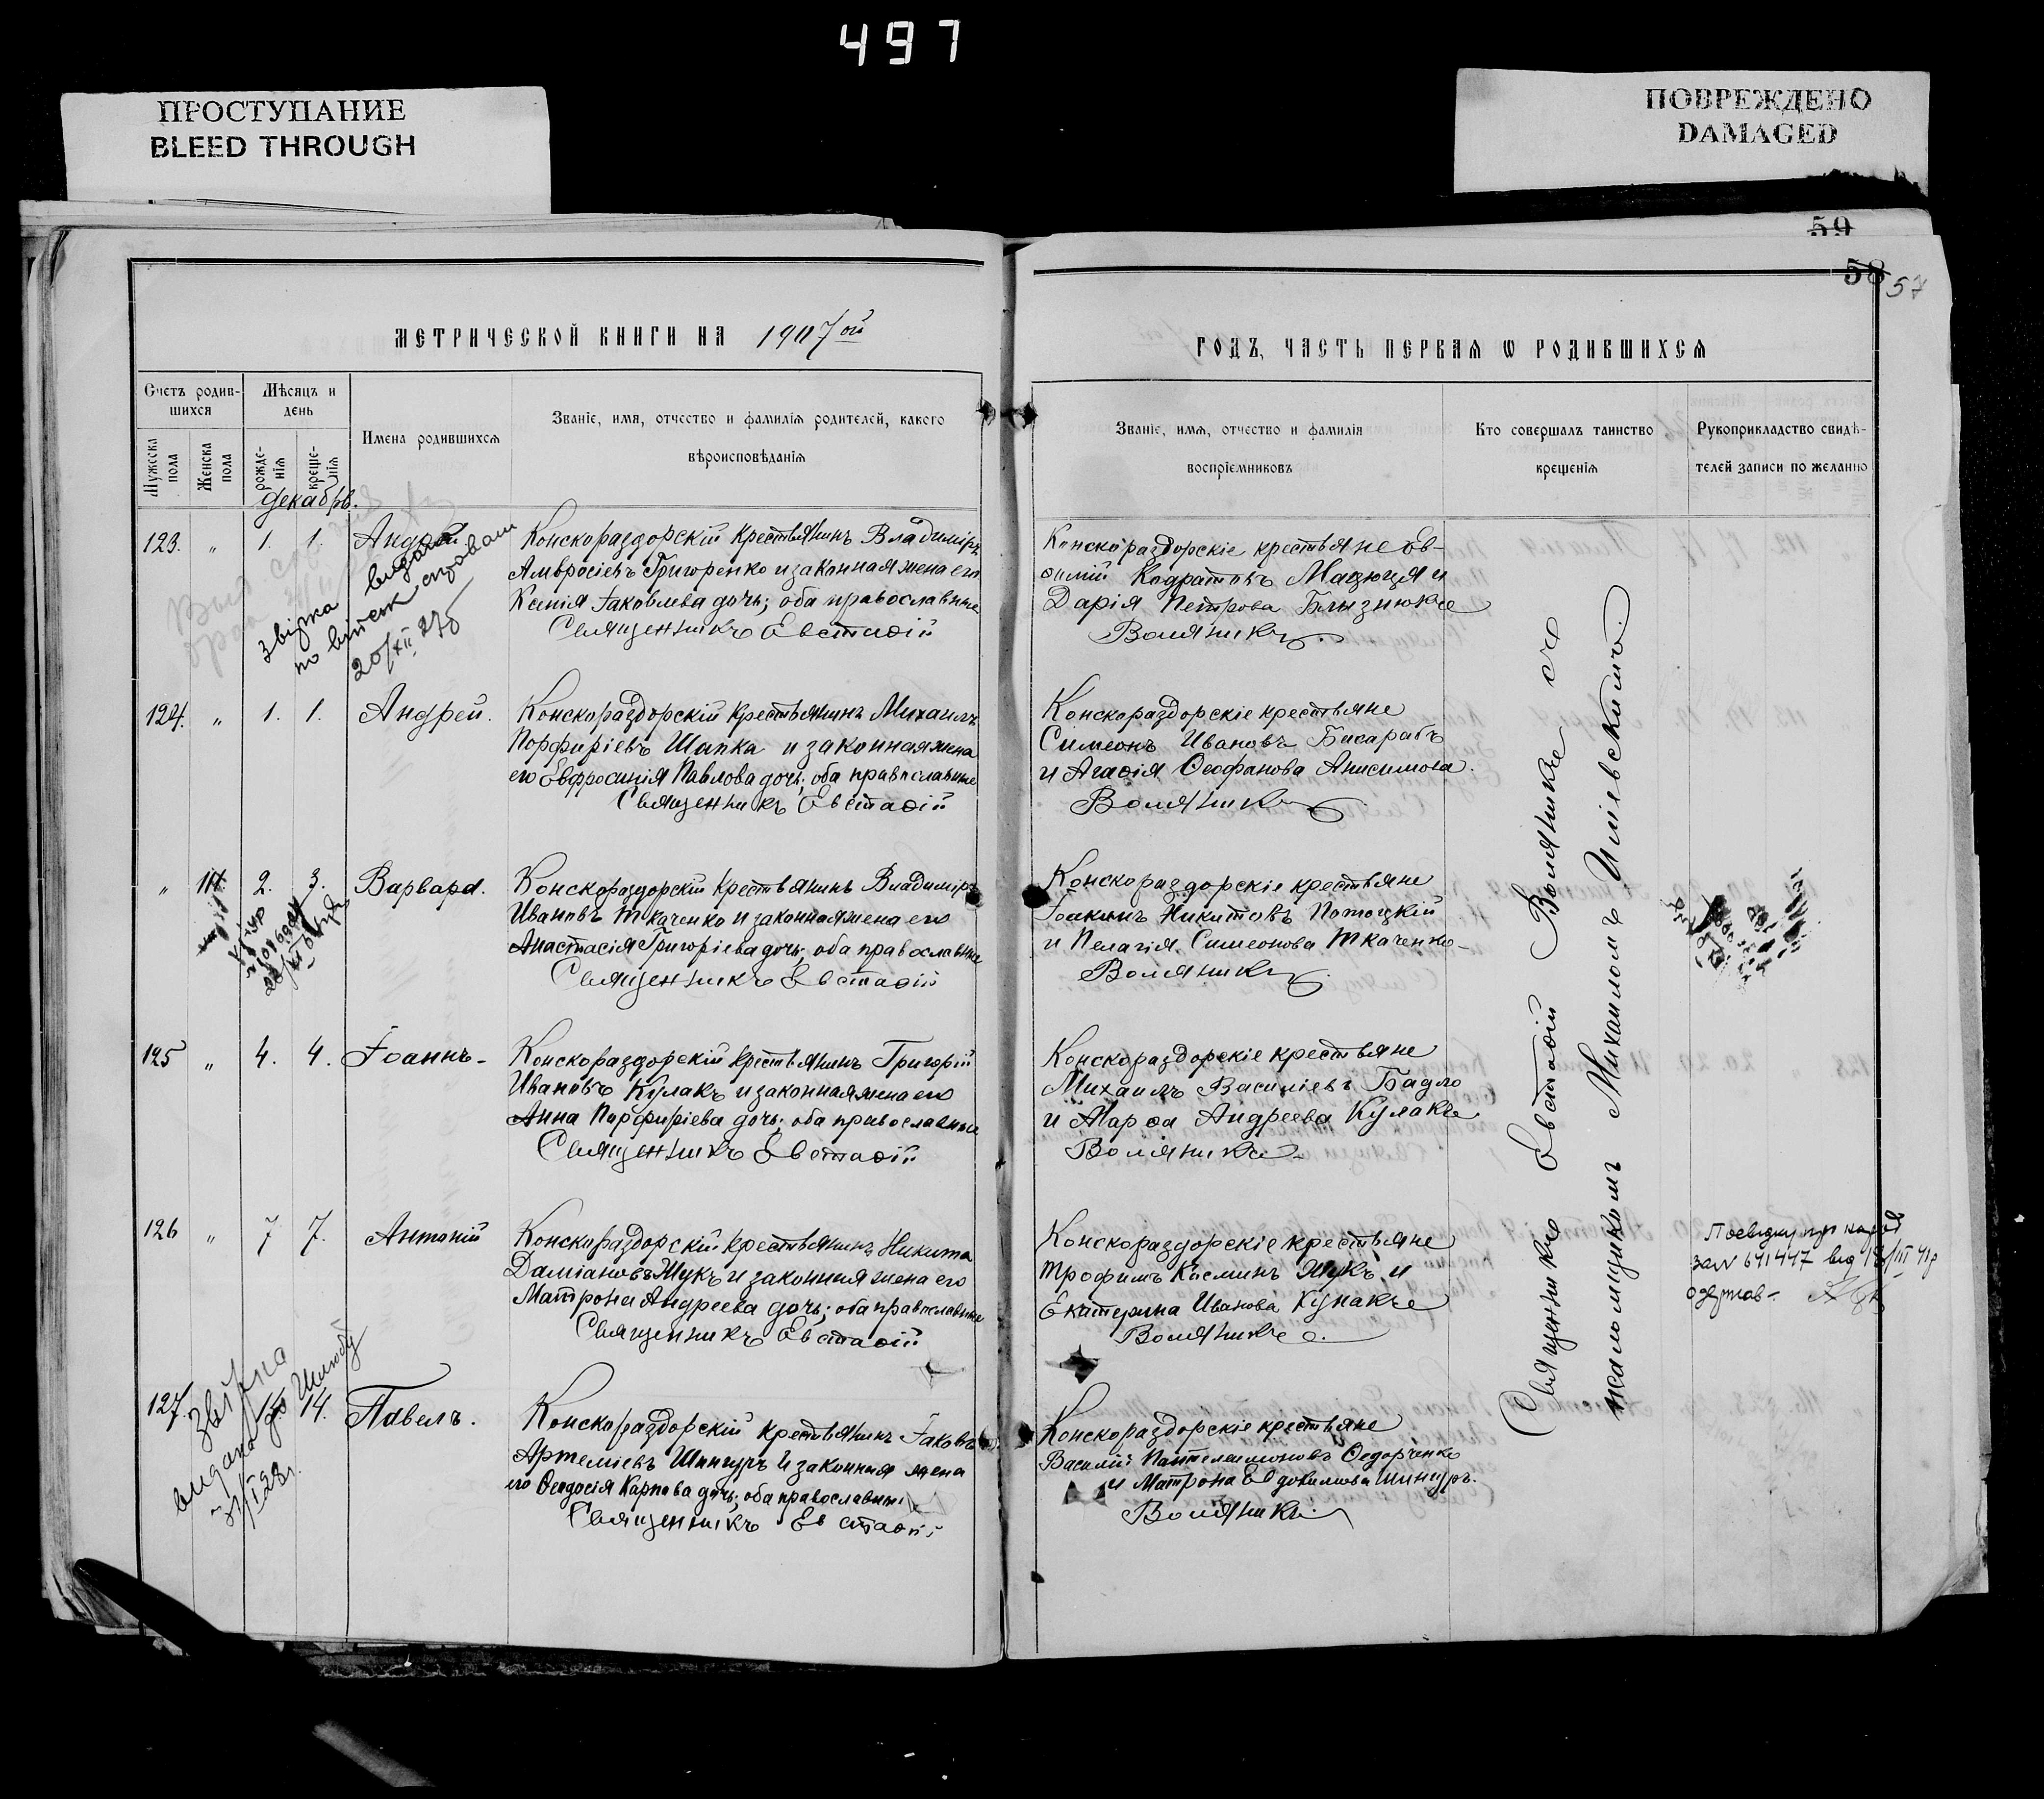 497
ПРОСТУПАНИЕ
BLEED THROUGH
ПОВРЕЖДЕНО
DAMAGED
59
58 57
МЕТРИЧЕСКОЙ КНИГИ НА 1907ой
ГОДЪ, ЧАСТЬ ПЕРВАЯ Ѡ РОДИВШИХСЯ
Счетъ родив-
шихся
Мѣсяцъ и
день
Мужеска
пола
Женска
пола
рожде-
нія
креще-
нія
Имена родившихся
Званіе, имя, отчество и фамилія родителей, какого
вѣроисповѣданія
Званіе, имя, отчество и фамилія
воспріемниковъ
Кто совершалъ таинство
крещенія
Рукоприкладство свидѣ-
телей записи по желанію
Декабрь.
123. „ 1. 1. Андрей.
Конскораздорскій крестьянинъ Владиміръ
Амвросіевъ Григоренко и законная жена его
Ксенія Іаковлева дочь; оба православные
Священникъ Евстаѳій
Конскораздорскіе крестьяне Ев-
ѳимій Кодратовъ Мацюця и
Дарія Петрова Блызнюкъ
Воляникъ.
видана
20/XII 27р
124. „ 1. 1. Андрей.
Конскораздорскій крестьянинъ Михаилъ
Порфиріевъ Шапка и законная жена
его Евфросинія Павлова дочь; оба православные
Священникъ Евстаѳій
Конскораздорскіе крестьяне
Симеонъ Ивановъ Бисарабъ
и Агаѳія Ѳеофанова Анисимова.
Воляникъ
„ 2. 3. Варвара.
Конскораздорскій крестьянинъ Владиміръ
Ивановъ Ткаченко и законная жена его
Анастасія Григоріева дочь; оба православные
Священникъ Евстаѳій
Конскораздорскіе крестьяне
Іоакимъ Никитовъ Потоцкій
и Пелагія Симеонова Ткаченко
Воляникъ
125 „ 4. 4. Іоаннъ
Конскораздорскій крестьянинъ Григорій
Ивановъ Кулакъ и законная жена его
Анна Парфиріева дочь; оба православные
Священникъ Евстаѳій
Конскораздорскіе крестьяне
Михаилъ Василіевъ Бадло
и Марѳа Андреева Кулакъ
Воляникъ
126 „ 7 7. Антоній
Конскораздорскій крестьянинъ Никита
Даміановъ Жукъ и законная жена его
Матрона Андреева дочь; оба православные
Священникъ Евстаѳій
Конскораздорскіе крестьяне
Трофимъ Косминъ Жукъ и
Екатерина Иванова Кунакъ
Воляникъ
за № 641447 від 18/III 41р
одержав
127. 14. Павелъ.
Конскораздорскій крестьянинъ Іаковъ
Артеміевъ Шингуръ и законная жена
его Ѳеодосія Карпова дочь; оба православные
Священникъ Евстаѳій
Конскораздорскіе крестьяне
Василій Пантелеимоновъ Ѳедорченко
и Матрона Евдокимова Шингуръ.
Воляникъ
видана
Священникъ Евстаѳій Воляникъ съ
псаломщикомъ Михаиломъ